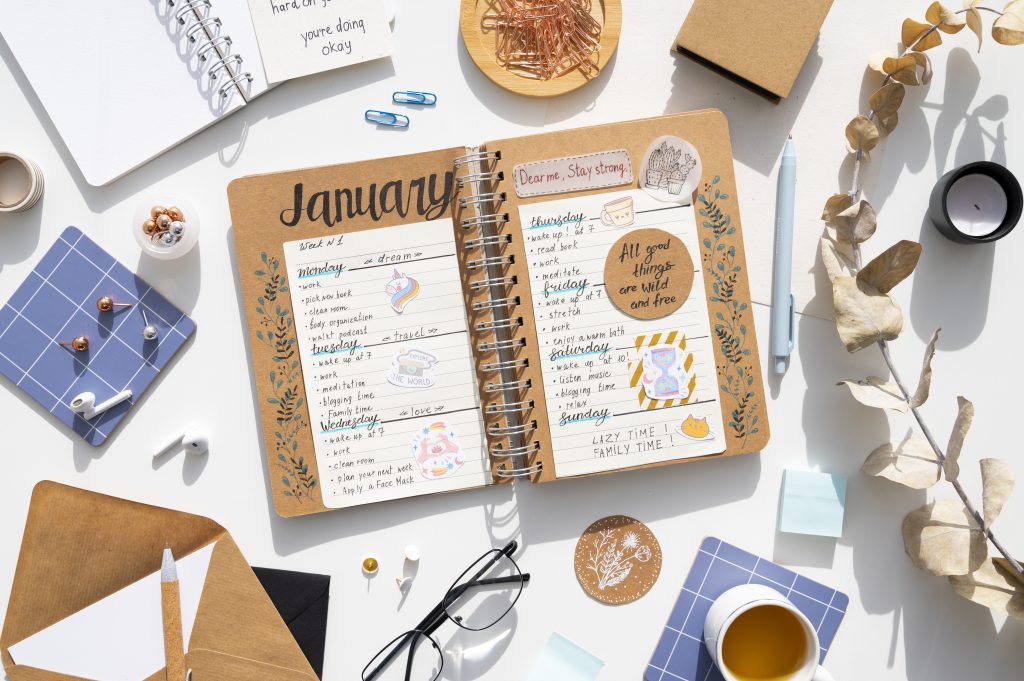 hard on yo
you're doing
okay
January
Week N1
monday « dream »
• work
• pick new book
• clean room
• body organization
• walk+ podcast
tuesday « travel »
• wake up at 7
• work
• meditation
• blogging time
• Family time
EXPLORE
THE WORLD
Wednesday « love »
• wake up at 7
• work
• clean room
• plan your next week
• Apply a Face Mask
Dear me, Stay strong.
thursday
• wake up! at 7
• read book
• work
• meditate
friday
• wake up at 7
• stretch
• work
• enjoy a warm bath
All good
things
are wild
and free
saturday
• wake up at 10!
• listen music
• blogging time
• relax
sunday
LAZY TIME!
FAMILY TIME!